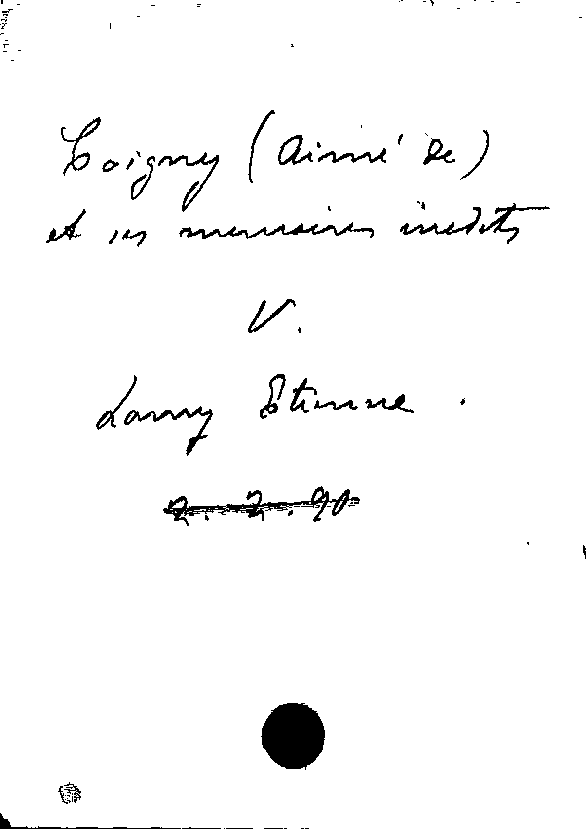 Coigny (Aimé de)
et ses memoires inedits
V.
Lamy Etienne.
2. 2. 90